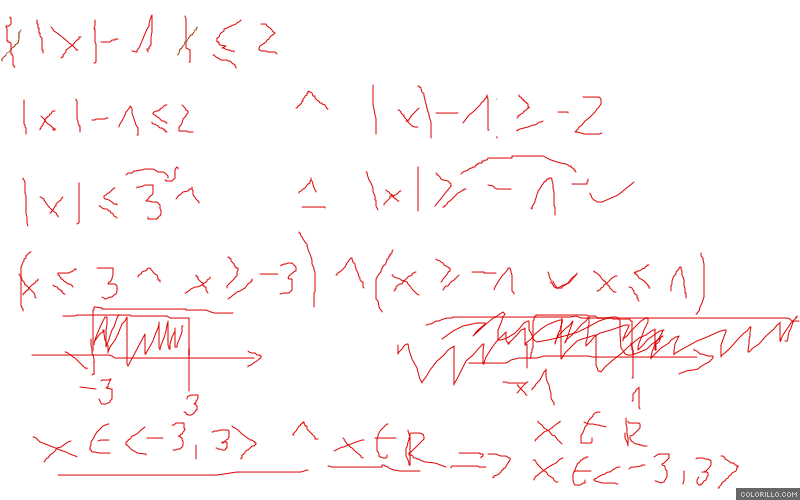 ||x|-1| ≤ 2
|x|-1 ≤ 2 ^ |x|-1 ≥ -2
|x| ≤ 3 ^ ^ |x| ≥ -1 v
(x ≤ 3 ^ x ≥ -3) ^ (x ≥ -1 v x ≤ 1)
-3 3 -1 1
x ∈ <-3, 3> ^ x ∈ R => x ∈ R
x ∈ <-3, 3>
COLORILLO.COM